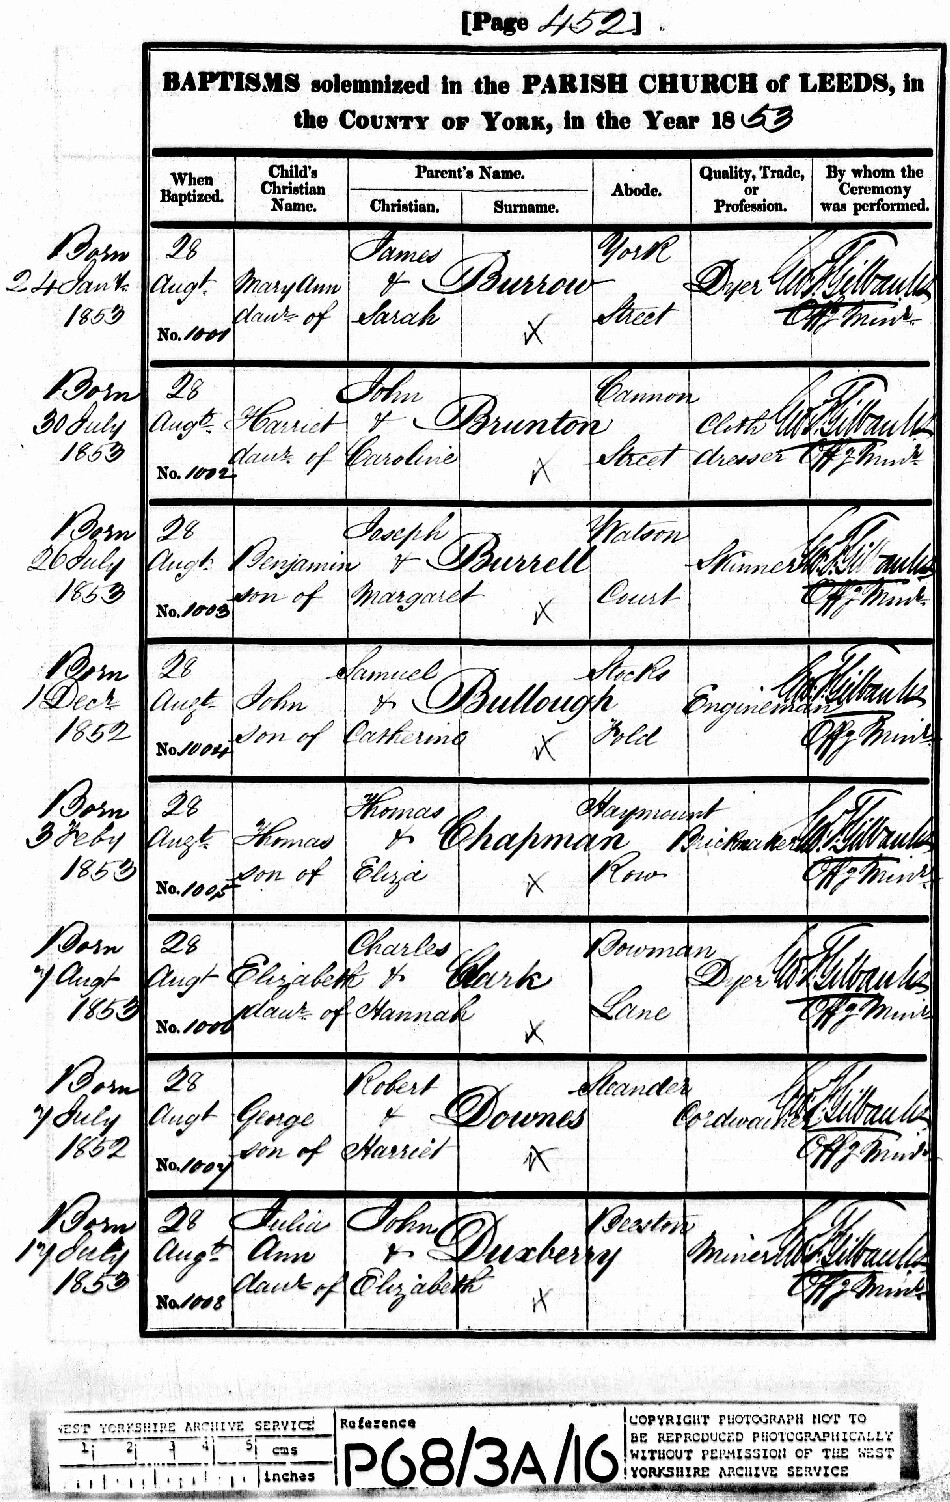 [Page 452]
BAPTISMS solemnized in the PARISH CHURCH of LEEDS, in
the COUNTY OF YORK, in the Year 1853
When Baptized.
Child's Christian Name.
Parent's Name.
Christian.
Surname.
Abode.
Quality, Trade, or Profession.
By whom the Ceremony was performed.
Born 28 James York
24 Jany Augt. Mary Ann & Burrow Dyer
1853 daur of Sarah Street Offg Minr
No. 1001 X
Born 28 John Cannon
30 July Augt. Harriet & Brunton Cloth
1853 daur of Caroline Street dresser Offg Minr
No. 1002 X
Born 28 Joseph Watson
26 July Augt. Benjamin & Burrell Skinner
1853 son of Margaret Court Offg Minr
No. 1003 X
Born 28 Samuel Stocks
1 Decr Augt. John & Bullough Engineman
1852 son of Catherine Fold Offg Minr
No. 1004 X
Born 28 Thomas Haymount
3 Feby Augt. Thomas & Chapman Brickmaker
1853 son of Eliza Row Offg Minr
No. 1005 X
Born 28 Charles Bowman
7 Augt Augt Elizabeth & Clark Dyer
1853 daur of Hannah Lane Offg Minr
No. 1006 X
Born 28 Robert
7 July Augt George & Downes Cordwainer
1852 son of Harriet Offg Minr
No. 1007 X
Born 28 Julia John Beeston
17 July Augt. Ann & Duxberry Miner
1853 daur of Elizabeth Offg Minr
No. 1008 X
WEST YORKSHIRE ARCHIVE SERVICE
1 2 3 4 5 cms
inches
Reference
P68/3A/16
COPYRIGHT PHOTOGRAPH NOT TO
BE REPRODUCED PHOTOGRAPHICALLY
WITHOUT PERMISSION OF THE WEST
YORKSHIRE ARCHIVE SERVICE